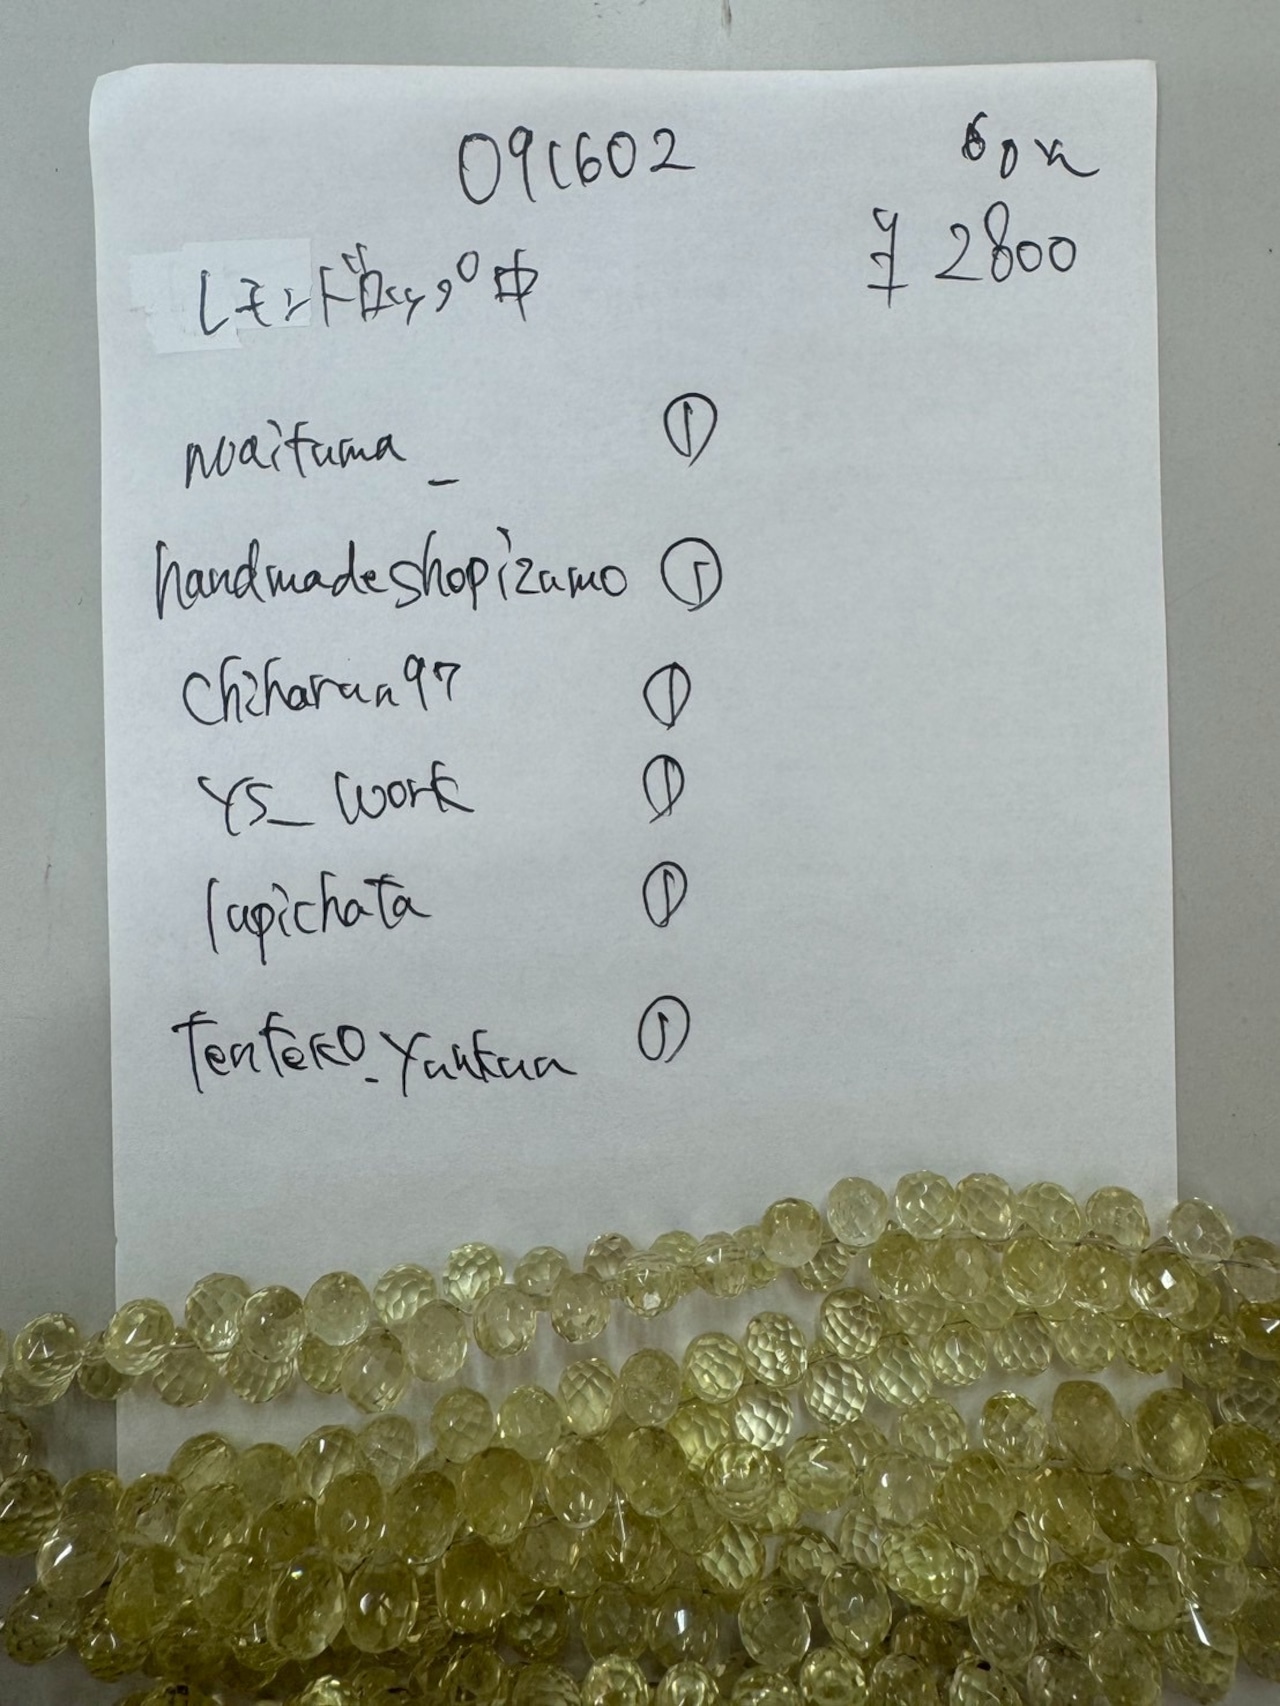 091602
60コ
¥2800
レモンドロップ 中
noaifuma_ ①
handmadeshopizumo ①
chiharun97 ①
YS_work ①
lapichata ①
Tenteko_yunkun ①